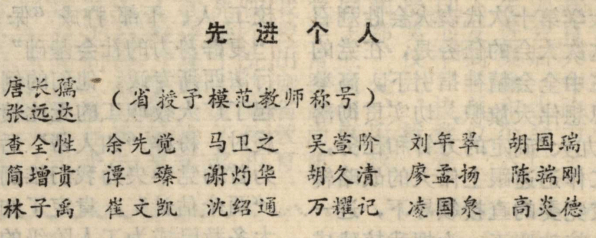 先进个人
唐长孺
张远达
（省授予模范教师称号）
查全性 余先觉 马卫之 吴萱阶 刘年翠 胡国瑞
简增贵 谭臻 谢灼华 胡久清 廖孟扬 陈端刚
林子禹 崔文凯 沈绍通 万耀记 凌国泉 高炎德